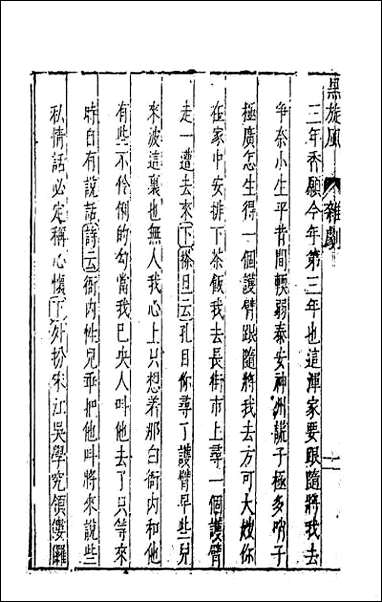 黑旋風 雜劇 一
三年香願今年第三年也這渾家要跟隨將我去
爭奈小生平昔間軟弱泰安神州謊子極多哨子
極廣怎生得一個護臂跟隨將我去方可大嫂你
在家中安排下茶飯我去長街市上尋一個護臂
走一遭去來下搽旦云孔目你尋了護臂早些兒
來波這裏也無人我心上只想着那白衙内和他
有些不伶俐的勾當我已央人叫他去了只等來
時自有說話詩云衙内性兒乖把他叫將來說些
私情話必定稱心懷下外扮宋江吳學究領僂儸